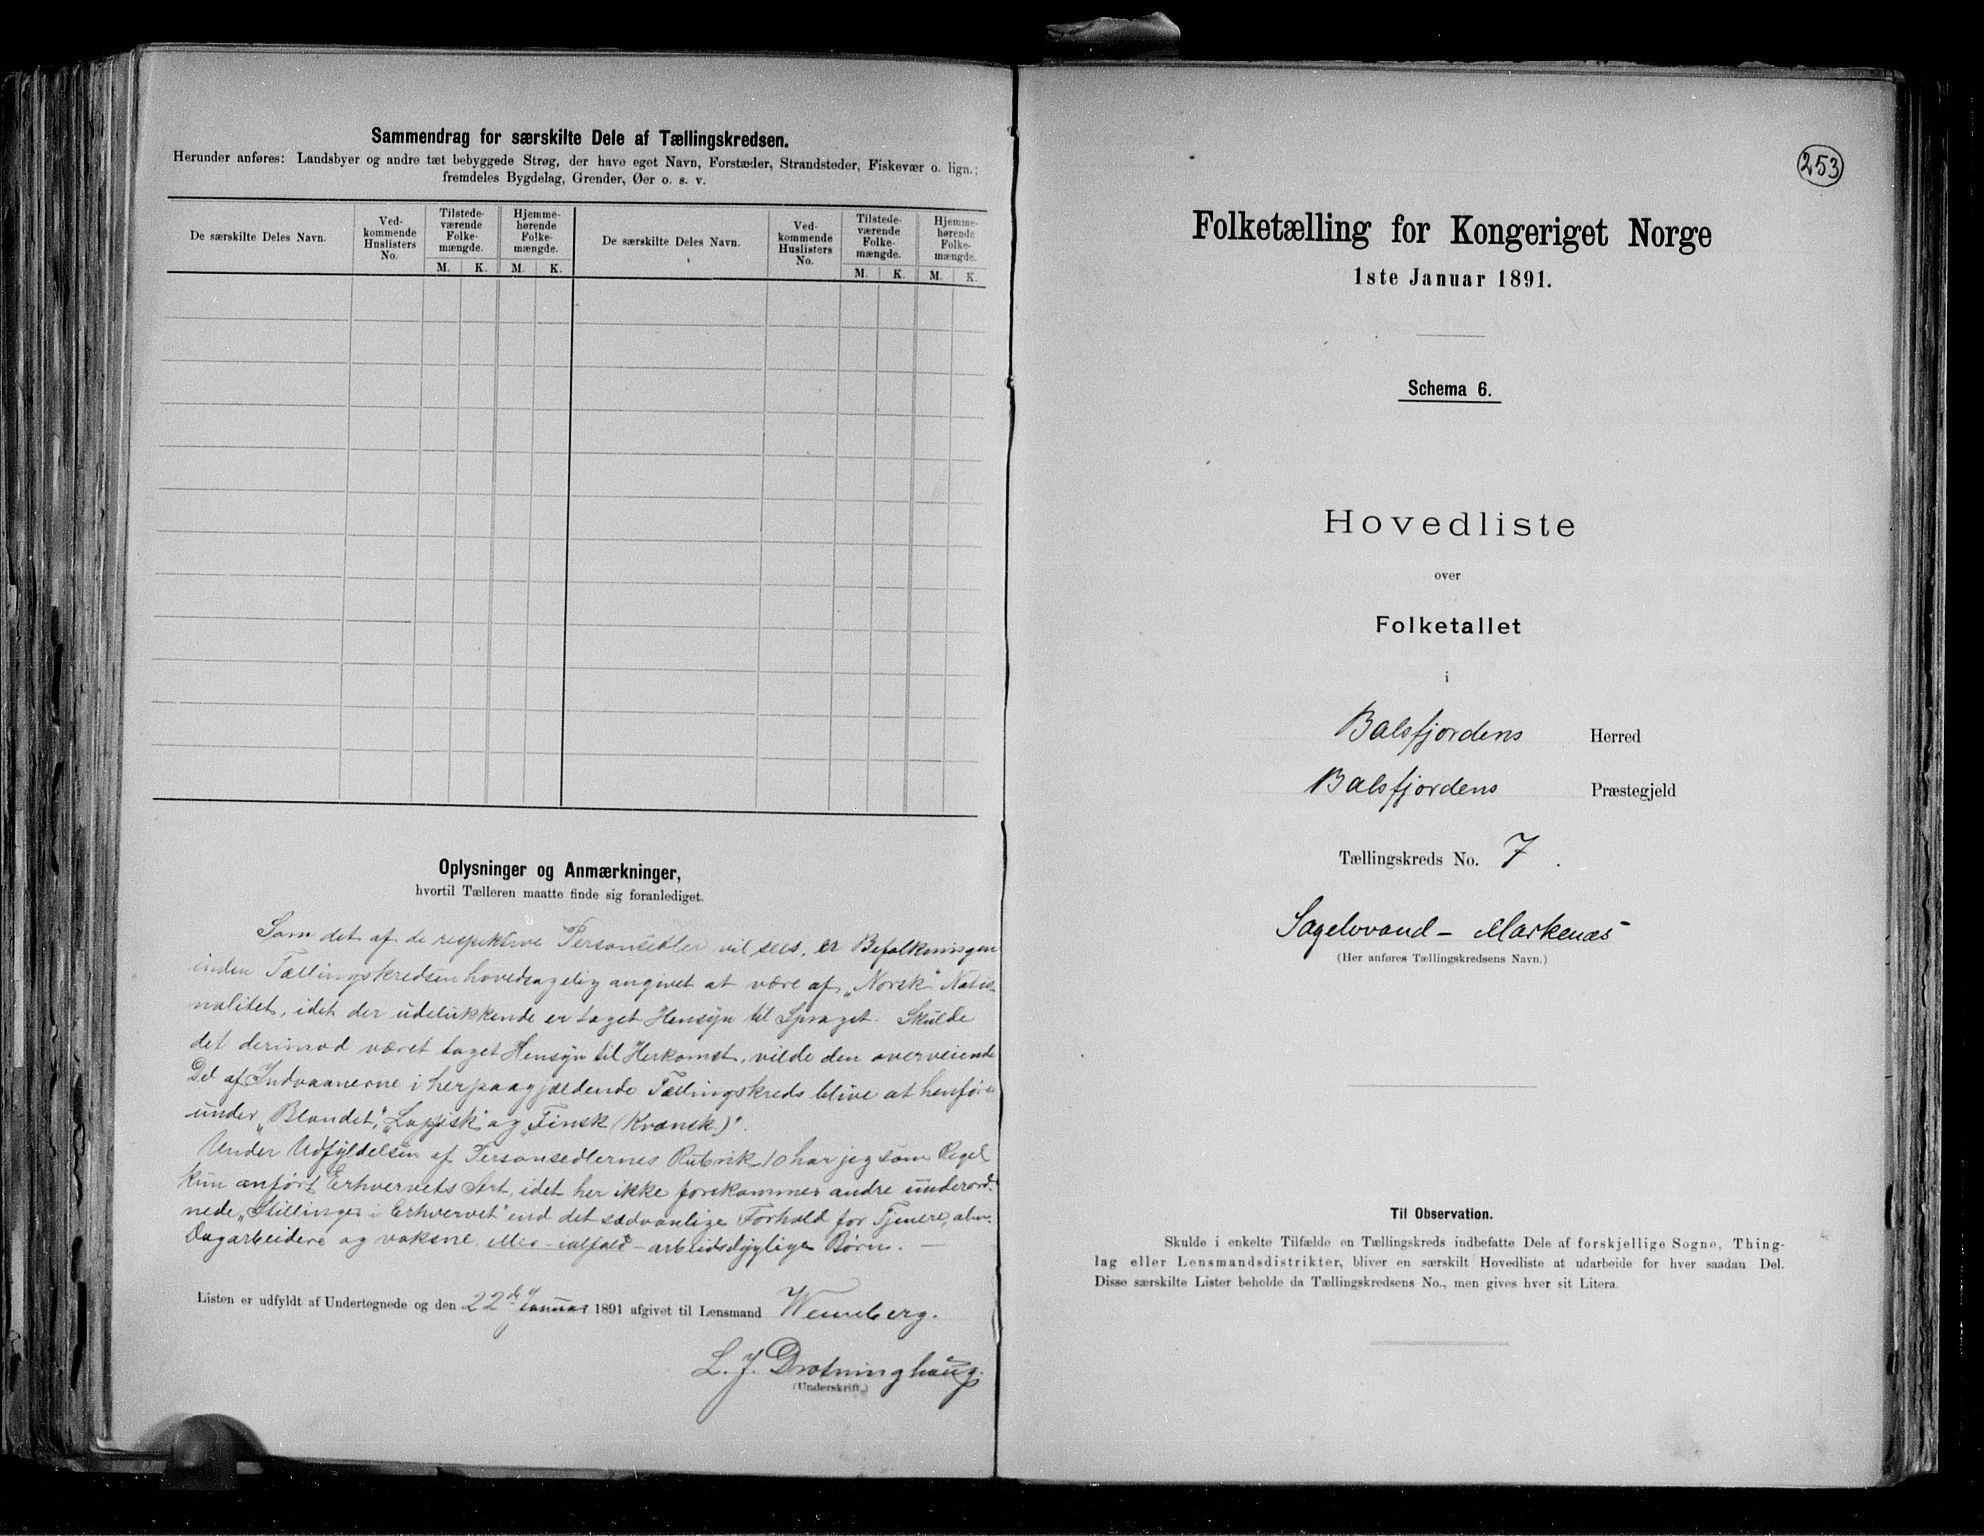 Sammendrag for særskilte Dele af Tællingskredsen.
Herunder anføres: Landsbyer og andre tæt bebyggede Strøg, der have eget Navn, Forstæder, Strandsteder, Fiskevær o. lign.;
fremdeles Bygdelag, Grender, Øer o. s. v.
De særskilte Deles Navn.
Ved-
kommende
Huslisters
No.
Tilstede-
værende
Folke-
mængde.
Hjemme-
hørende
Folke-
mængde.
M. K. M. K.
De særskilte Deles Navn.
Ved-
kommende
Huslisters
No.
Tilstede-
værende
Folke-
mængde.
Hjemme-
hørende
Folke-
mængde.
M. K. M. K.
Oplysninger og Anmærkninger,
hvortil Tælleren maatte finde sig foranlediget.
Som det af de respektive Personsedler vil sees, er Befolkningen
inden Tællingskredsen hovedsagelig angivet at være af „Norsk“ Natio-
nalitet, idet der udelukkende er taget Hensyn til Sproget. Skulde
det derimod været taget Hensyn til Herkomst, vilde den overveiende
Del af Indvaanerne i herpaagjældende Tællingskreds blive at henføre
under „Blandet“, „Lappisk“ og „Finsk (Kvænsk)“.
Under Udfyldelsen af Personsedlernes Rubrik 10 har jeg som Regel
kun anført Erhvervets Art, idet her ikke forekommer andre underord-
nede „Stillinger i Erhvervet“ end det sædvanlige Forhold for Tjenere, alm.
Dagarbeidere og voksne arbeidsdygtige Børn. —
Listen er udfyldt af Undertegnede og den 22de Januar 1891 afgivet til Lensmand Wennberg.
L. J. Drotninghaug
(Underskrift.)
253
Folketælling for Kongeriget Norge
1ste Januar 1891.
Schema 6.
Hovedliste
over
Folketallet
i
Balsfjordens Herred
Balsfjordens Præstegjeld
Tællingskreds No. 7.
Sagelvvand - Markenæs
(Her anføres Tællingskredsens Navn.)
Til Observation.
Skulde i enkelte Tilfælde en Tællingskreds indbefatte Dele af forskjellige Sogne, Thing-
lag eller Lensmandsdistrikter, bliver en særskilt Hovedliste at udarbeide for hver saadan Del.
Disse særskilte Lister beholde da Tællingskredsens No., men gives hver sit Litera.